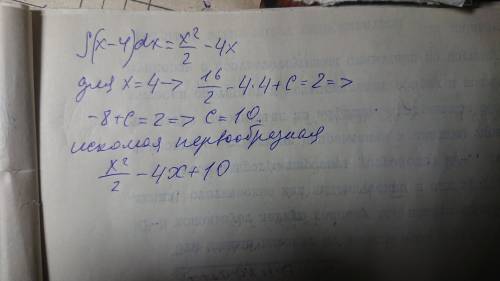 ∫(x-4)dx = x²/2 - 4x
для x=4 -> 16/2 - 4·4 + C = 2 =>
-8+C=2 => C=10.
искомая первообразная
x²/2 - 4x + 10